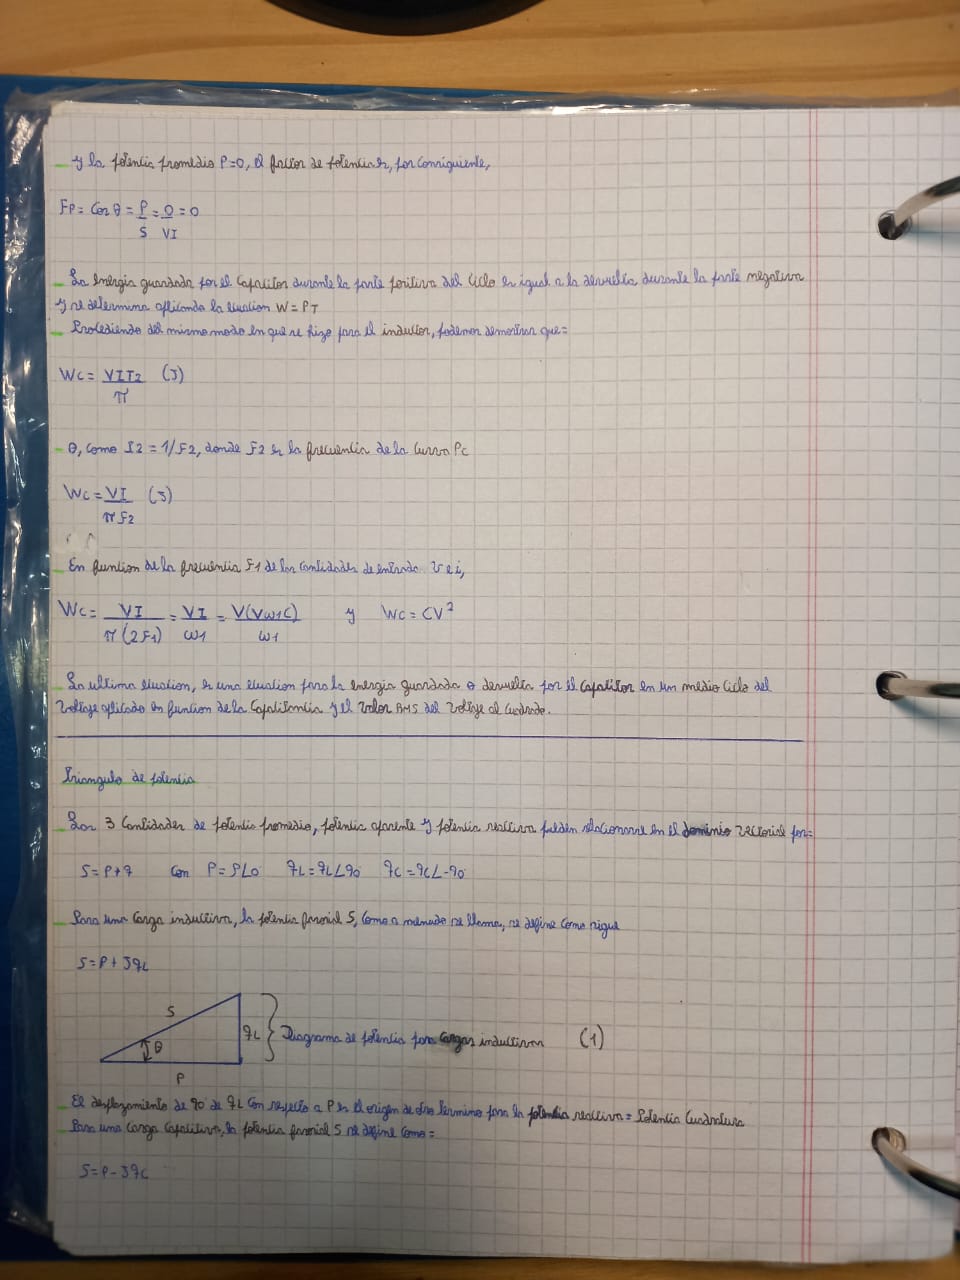 - y la potencia promedio P=0, el factor de potencia es, por consiguiente,
Fp = Cos θ = P/S = 0/VI = 0
- La energia guardada por el Capacitor durante la parte positiva del Ciclo es igual a la devuelta durante la parte negativa
y se determina aplicando la ecuacion W = PT
- Procediendo del mismo modo en que se hizo para el inductor, podemos demostrar que=
Wc = VIT2/π (3)
- O, como I2 = 1/F2, donde F2 es la frecuencia de la Curva Pc
Wc = VI/πF2 (3)
- En funcion de la frecuencia F1 de las Cantidades de entrada v e i,
Wc = VI/π(2F1) = VI/ω1 = V(Vω1C)/ω1 y Wc = CV²
- La ultima ecuacion, es una ecuacion para la energia guardada o devuelta por el Capacitor en un medio Ciclo del
Voltaje aplicado en funcion de la Capacitancia y el Valor RMS del Voltaje al Cuadrado.
Triangulo de potencia
- Las 3 Cantidades de potencia promedio, potencia aparente y potencia reactiva pueden relacionarse en el dominio Vectorial por=
S = P + q Con P = P∠0 qL = qL∠90 qC = qC∠-90
- Para una Carga inductiva, la potencia fasorial S, Como a menudo se llama, se define Como sigue
S = P + JqL
S
θ
P
qL } Diagrama de potencia para Cargas inductivas (1)
- El desplazamiento de 90 de qL Con respecto a P es el origen de otro termino para la potencia reactiva = Potencia Cuadratura
- Para una Carga Capacitiva, la potencia fasorial S se define Como =
S = P - JqC